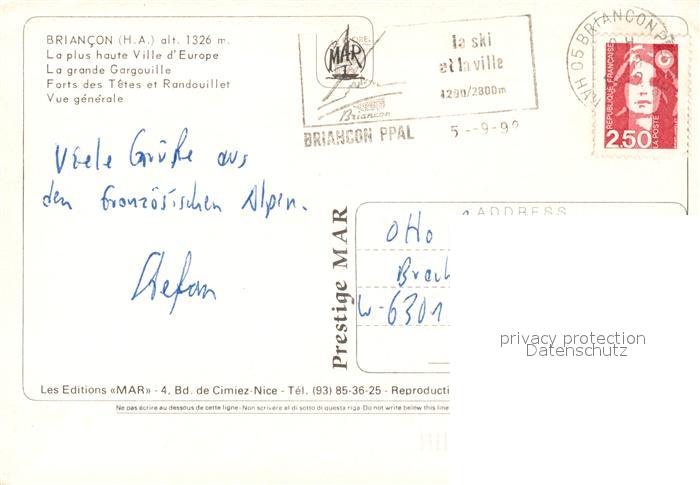 BRIANÇON (H.A.) alt. 1326 m.
La plus haute Ville d'Europe
La grande Gargouille
Forts des Têtes et Randouillet
Vue générale
MAR
le ski
et la ville
1200/2800m
Briancon
BRIANCON PPAL 5 -9-92
05 BRIANCON
RÉPUBLIQUE FRANÇAISE
2,50
LA POSTE
Viele Grüße aus
den französischen Alpen.
Stefan
Prestige MAR
ADDRESS
Otto
W-6301
privacy protection
Datenschutz
Les Editions «MAR» - 4, Bd. de Cimiez-Nice - Tél. (93) 85-36-25 - Reproducti
Ne pas écrire au dessous de cette ligne - Non scrivere al di sotto di questa riga - Do not write below this line